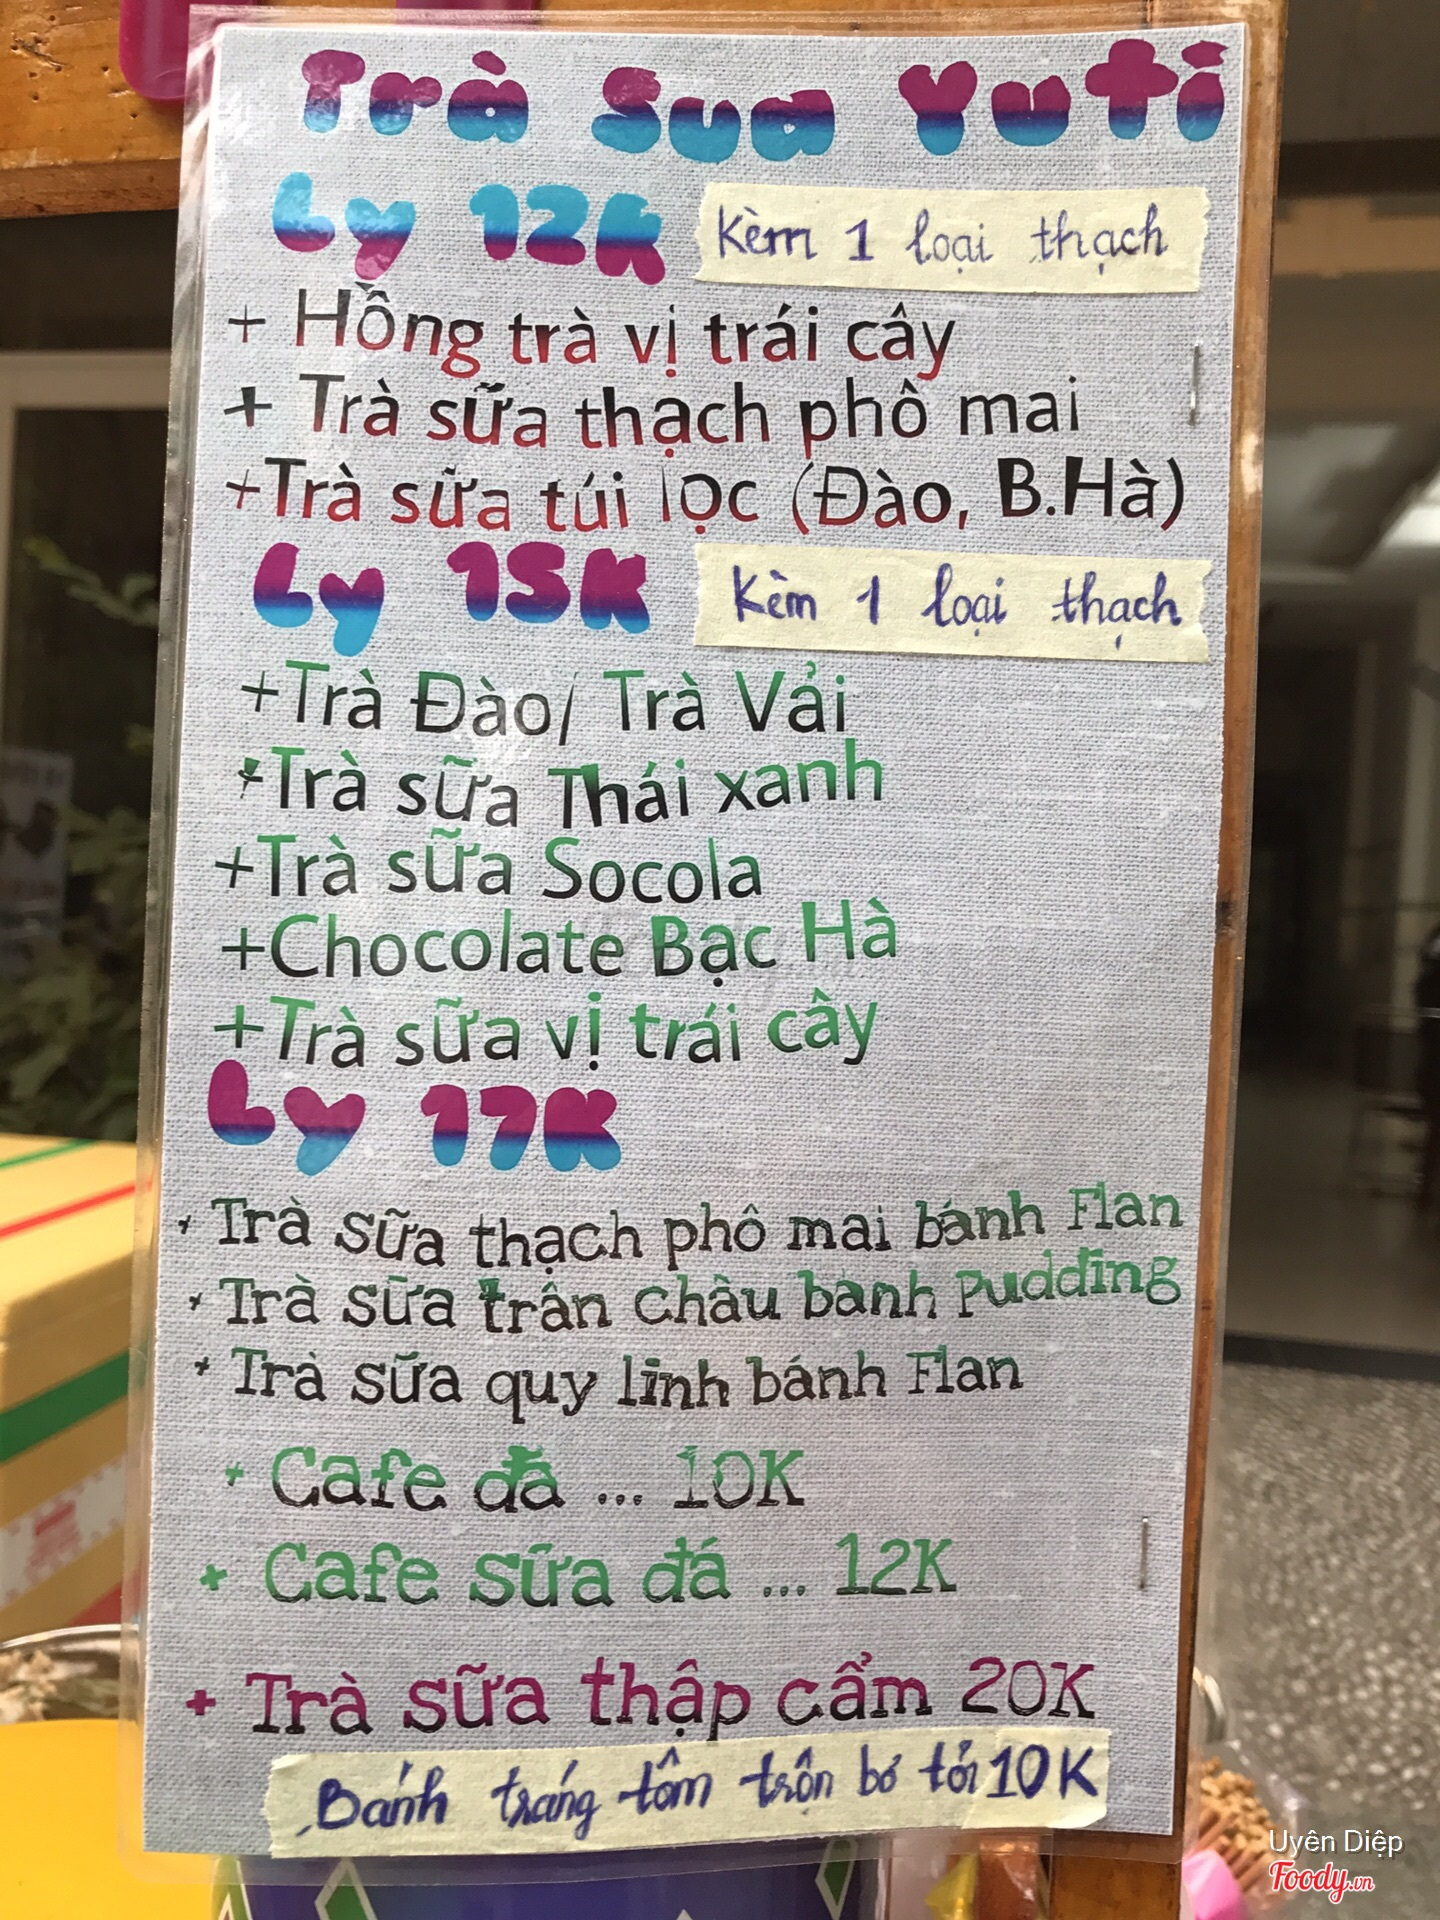 Trà Sua Yuti
Ly 12K Kèm 1 loại thạch
+ Hồng trà vị trái cây
+ Trà sữa thạch phô mai
+Trà sữa túi lọc (Đào, B.Hà)
Ly 15K Kèm 1 loại thạch
+Trà Đào/ Trà Vải
+Trà sữa Thái xanh
+Trà sữa Socola
+Chocolate Bạc Hà
+Trà sữa vị trái cây
Ly 17K
+ Trà sữa thạch phô mai bánh Flan
+ Trà sữa trân châu bánh Pudding
+ Trà sữa quy linh bánh Flan
+ Cafe đá ... 10K
+ Cafe sữa đá ... 12K
+ Trà sữa thập cẩm 20K
Bánh tráng tôm trộn bơ tỏi 10K
Uyên Diệp
Foody.vn